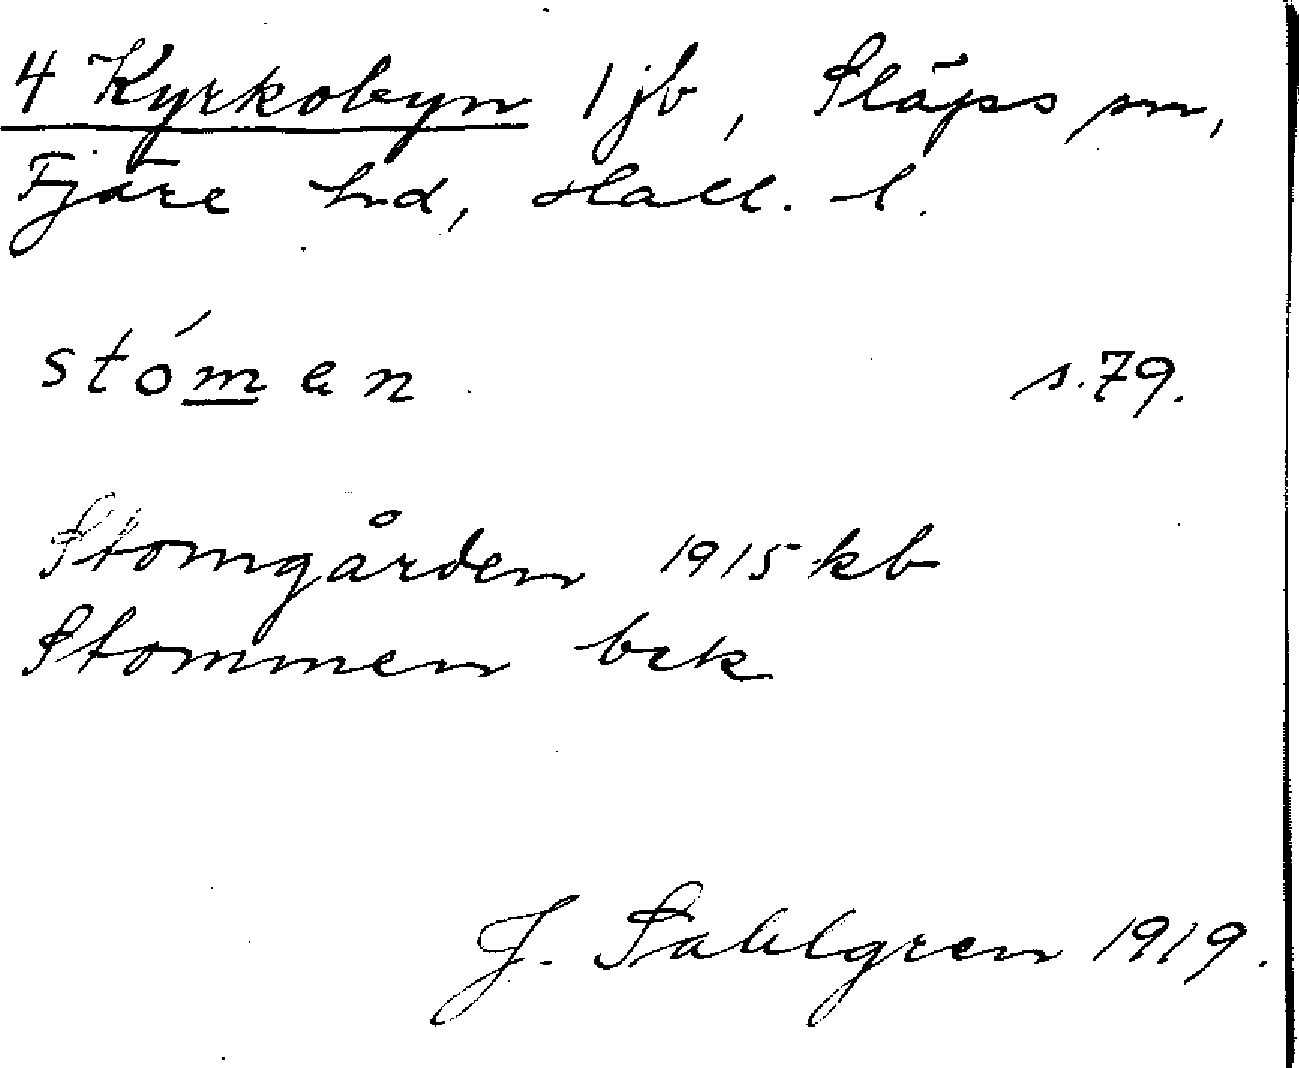 4 Kyrkobyn 1 jb, Släps sn,
Fjäre hd, Hall. l.
stóman s.79.
Stomgården 1915 kb
Stommen bek
J. Sahlgren 1919.